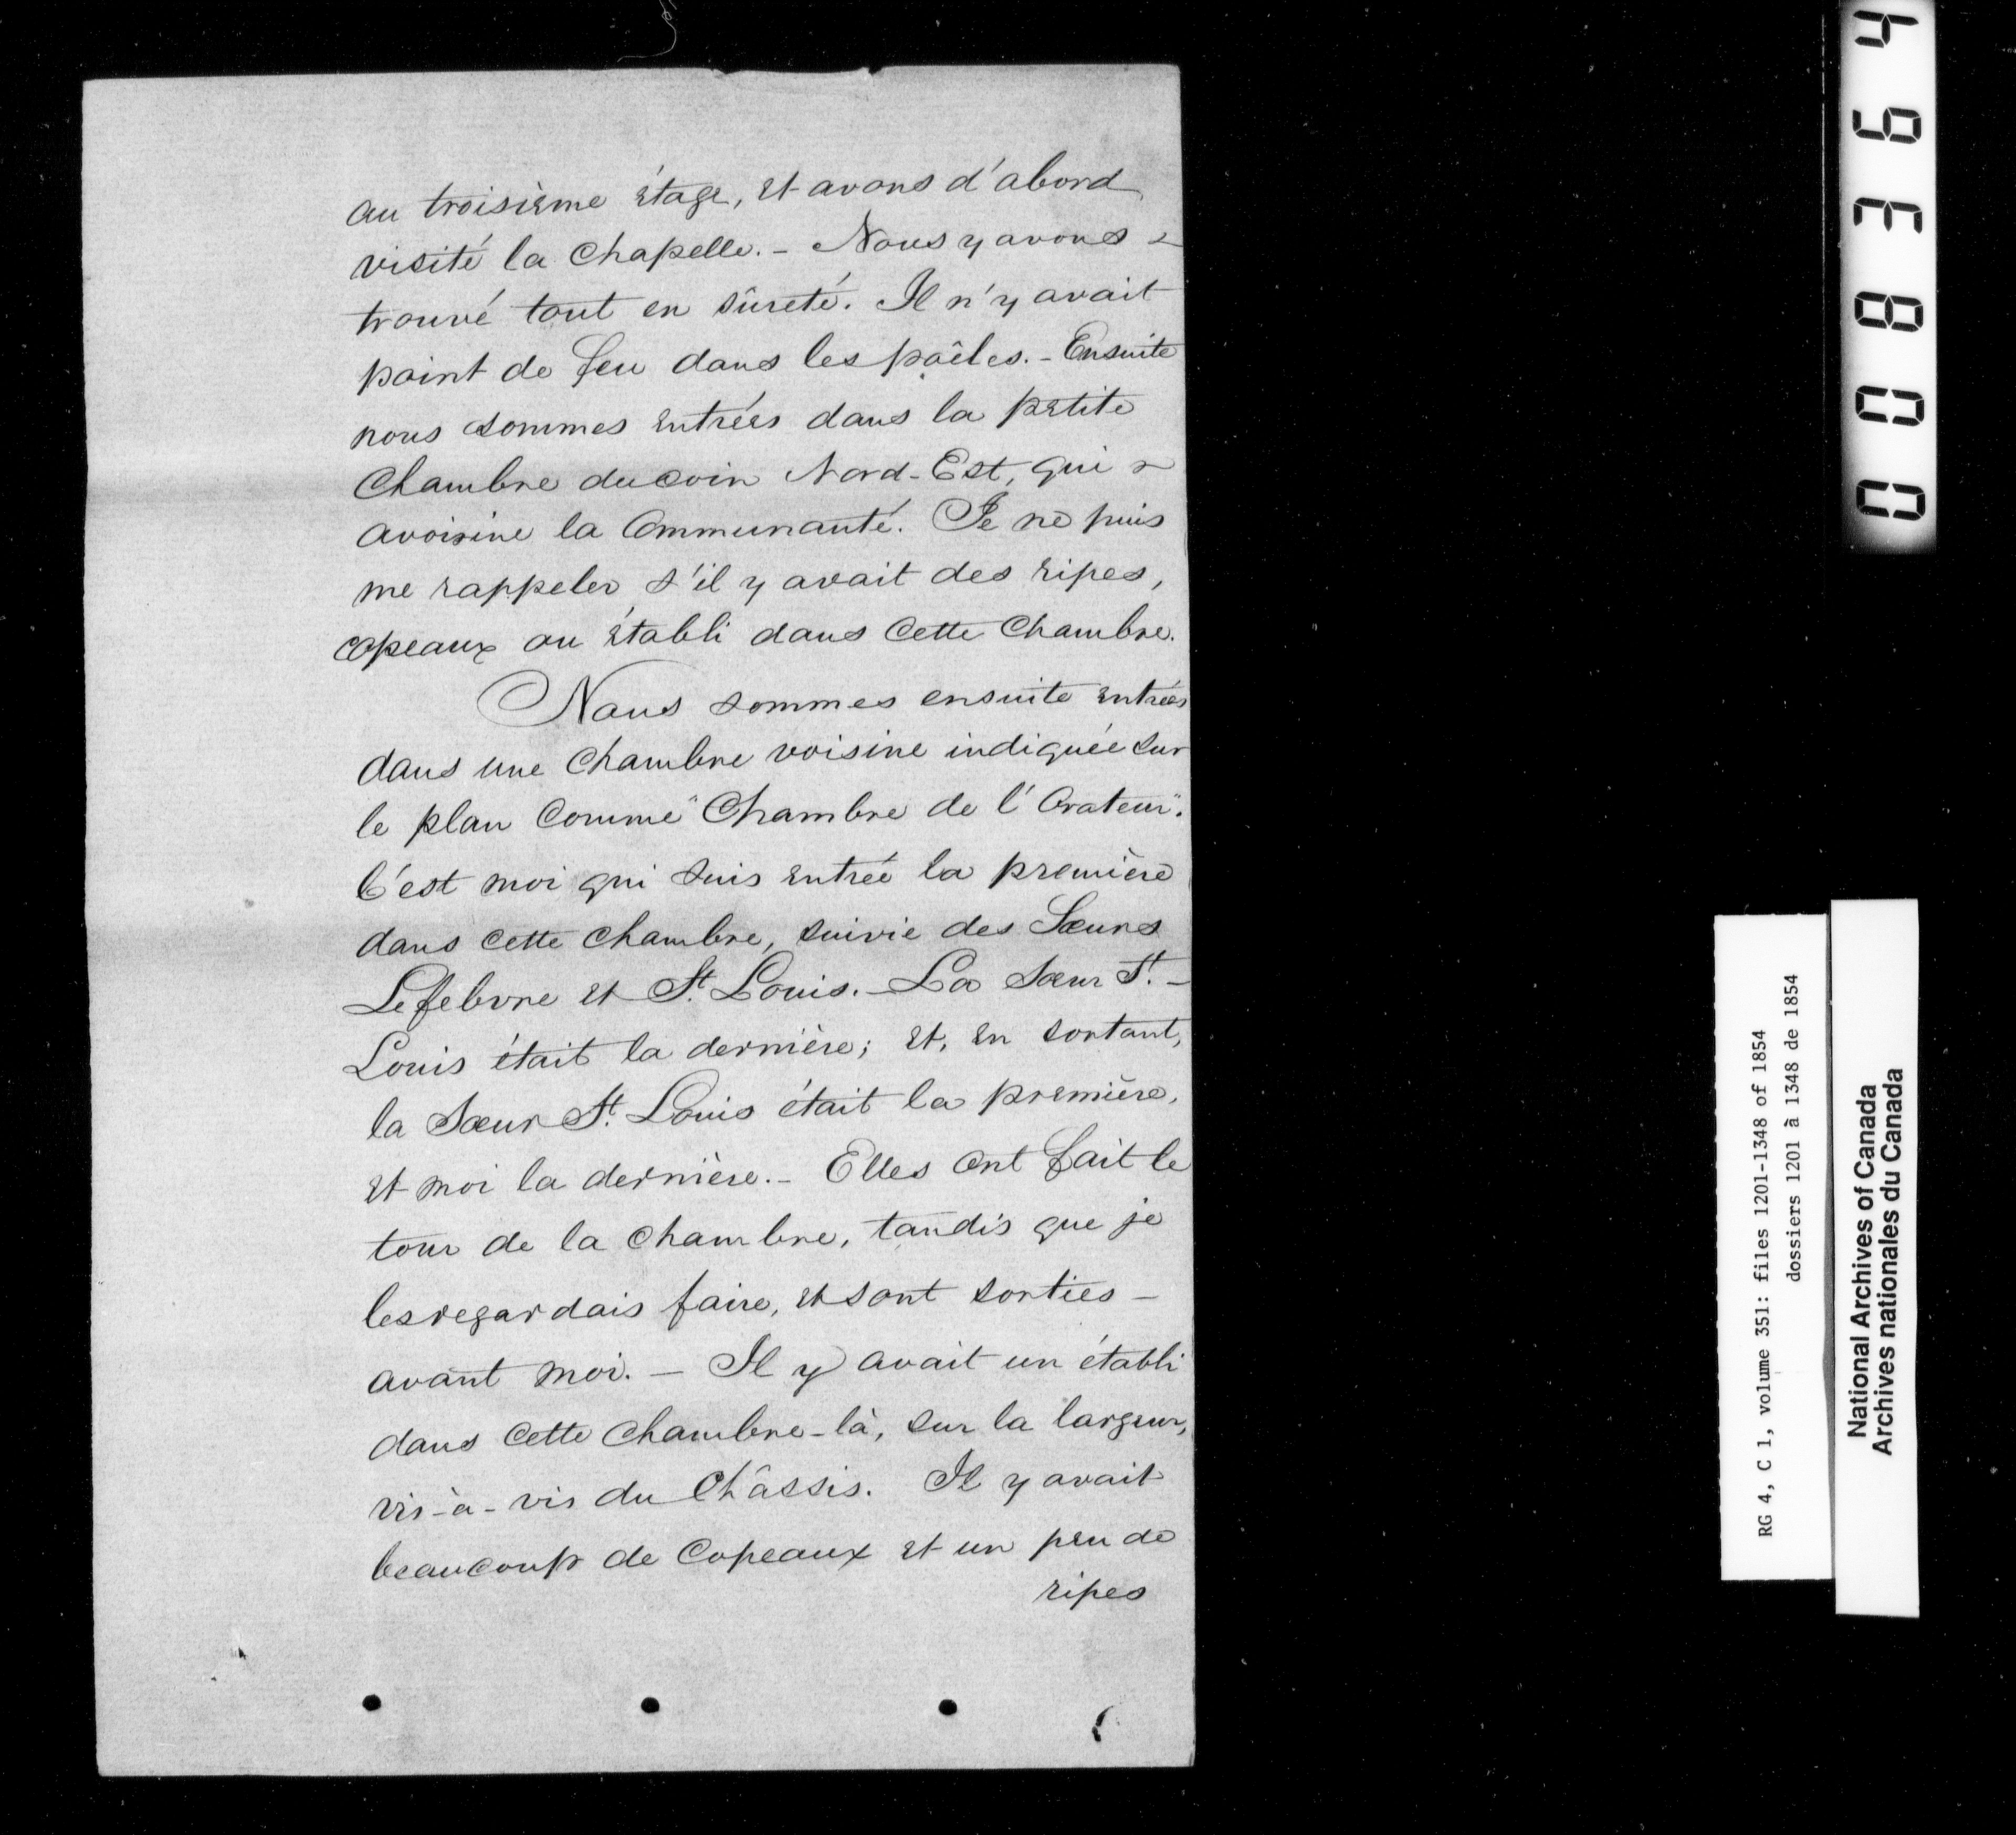 au troisième étage, et avons d'abord
visité la Chapelle. - Nous y avons
trouvé tout en sûreté. Il n'y avait
point de feu dans les poêles. - Ensuite
nous sommes entrées dans la petite
Chambre du coin Nord-Est, qui
avoisine la Communauté. Je ne puis
me rappeler s'il y avait des ripes,
copeaux ou établi dans cette Chambre.
Nous sommes ensuite entrées
dans une Chambre voisine indiquée sur
le plan comme "Chambre de l'Orateur".
C'est moi qui suis entrée la première
dans cette chambre, suivie des Sœurs
Lefebvre et St. Louis. - La Sœur St. -
Louis était la dernière; et, en sortant,
la Sœur St. Louis était la première,
et moi la dernière. - Elles ont fait le
tour de la Chambre, tandis que je
les regardais faire, et sont sorties -
avant moi. - Il y avait un établi
dans cette Chambre-là, sur la largeur,
vis-à-vis du Châssis. Il y avait
beaucoup de Copeaux et un peu de
ripes
008364
RG 4, C 1, volume 351: files 1201-1348 of 1854
dossiers 1201 à 1348 de 1854
National Archives of Canada
Archives nationales du Canada